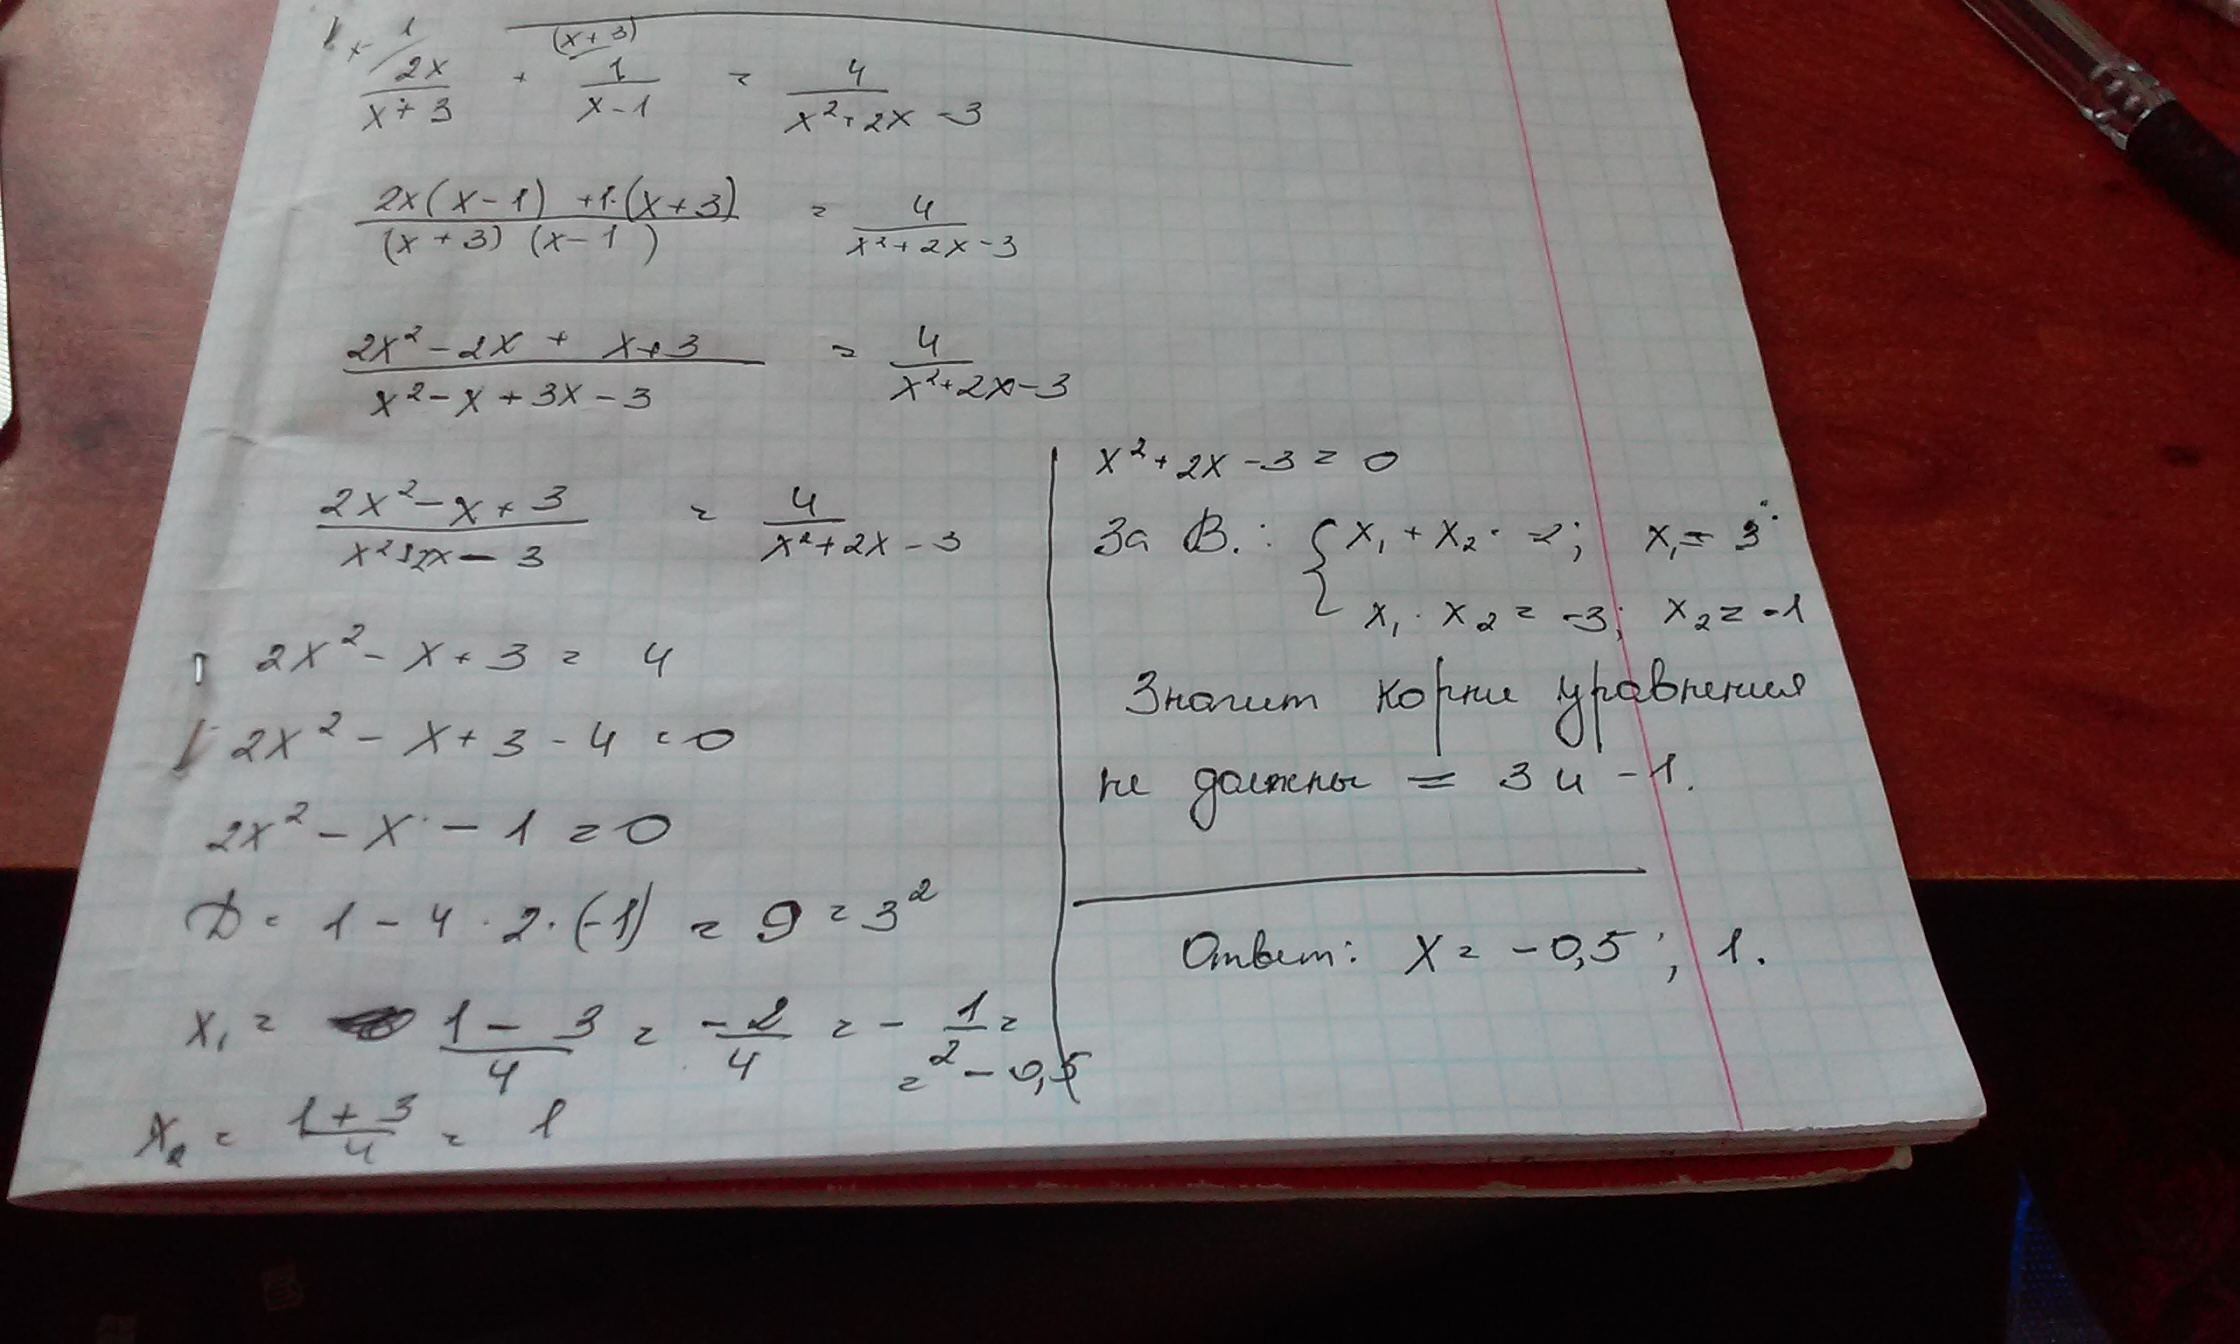 x-1 (x+3)
2x/(x+3) + 1/(x-1) = 4/(x²+2x-3)
(2x(x-1) +1·(x+3))/((x+3)(x-1)) = 4/(x²+2x-3)
(2x²-2x+x+3)/(x²-x+3x-3) = 4/(x²+2x-3)
(2x²-x+3)/(x²+2x-3) = 4/(x²+2x-3)
2x²-x+3 = 4
2x²-x+3-4 = 0
2x²-x-1 = 0
D = 1-4·2·(-1) = 9 = 3²
x₁ = (1-3)/4 = -2/4 = -1/2 =
= -0,5
x₂ = (1+3)/4 = 1
x²+2x-3 = 0
За В.: { x₁+x₂ = 2; x₁ = 3
x₁·x₂ = -3; x₂ = -1
Значит корни уравнения
не должны = 3 и -1.
Ответ: x = -0,5; 1.